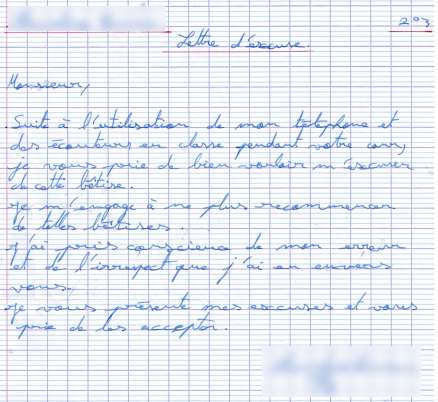 203
Lettre d'excuse.
Monsieur,
Suite à l'utilisation de mon téléphone et
des écouteurs en classe pendant votre cours,
je vous prie de bien vouloir m'excuser
de cette bêtise.
Je m'engage à ne plus recommencer
de telles bêtises.
J'ai pris conscience de mon erreur
et de l'irrespect que j'ai eu envers
vous.
Je vous présente mes excuses et vous
prie de les accepter.